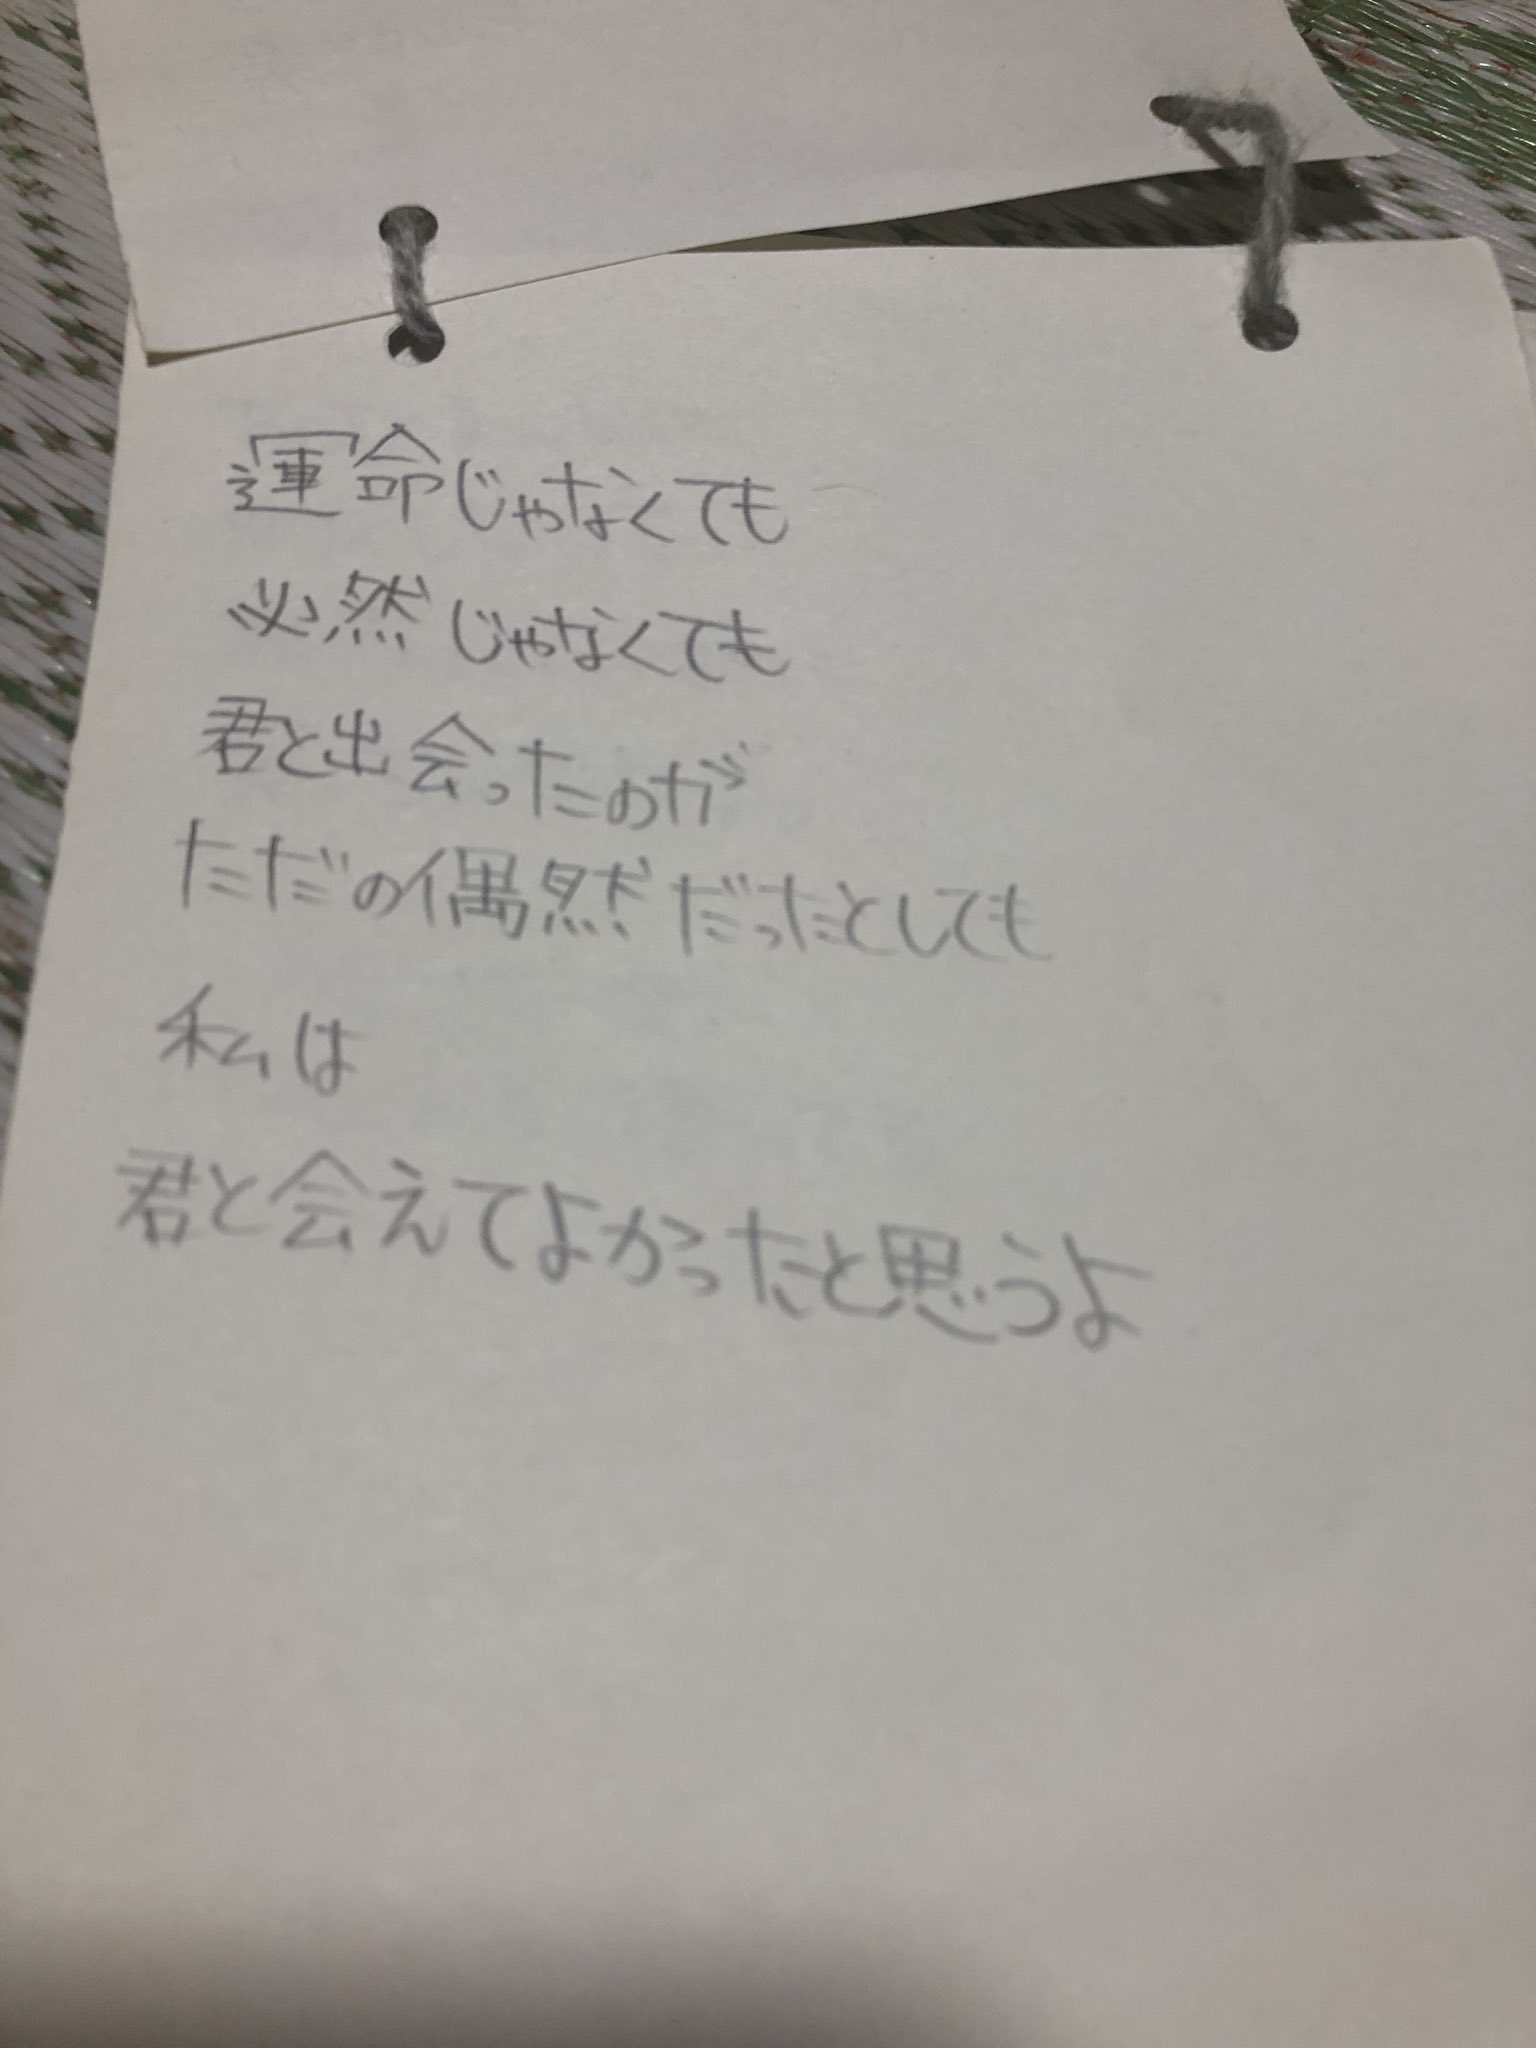 運命じゃなくても
必然じゃなくても
君と出会ったのが
ただの偶然だったとしても
私は
君と会えてよかったと思うよ